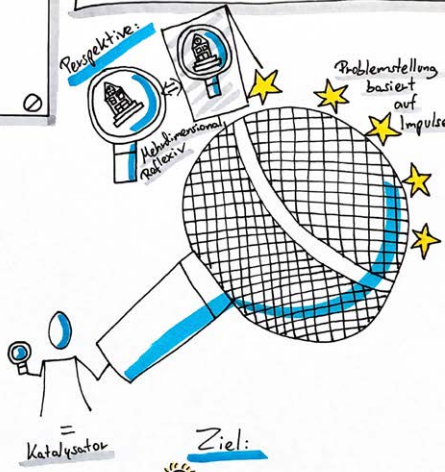 Perspektive:
Mehrdimensional
Reflexiv
Problemstellung
basiert
auf
Impulse
=
Katalysator
Ziel: